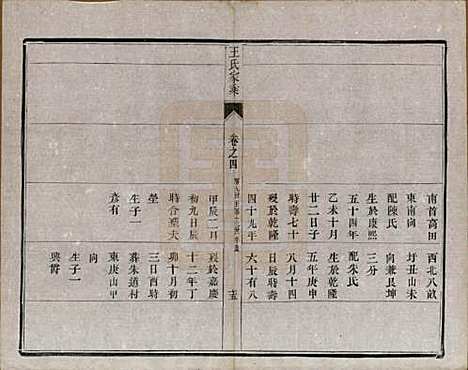 南首高田
東南崗
配陳氏
生於康熙
五十四年
乙未十月
廿二日子
時壽七十
歿於乾隆
四十九年
王氏家乘
卷之四
十五
甲辰二月
初九日辰
時合葬夫
塋
生子一
彥有
西北八畝
圩丑山未
向兼艮坤
三分
配朱氏
生於乾隆
五年庚申
八月十四
日辰時壽
六十有八
歿於嘉慶
十二年丁
卯十月初
三日酉時
葬朱道村
東庚山甲
向
生子一
興爵